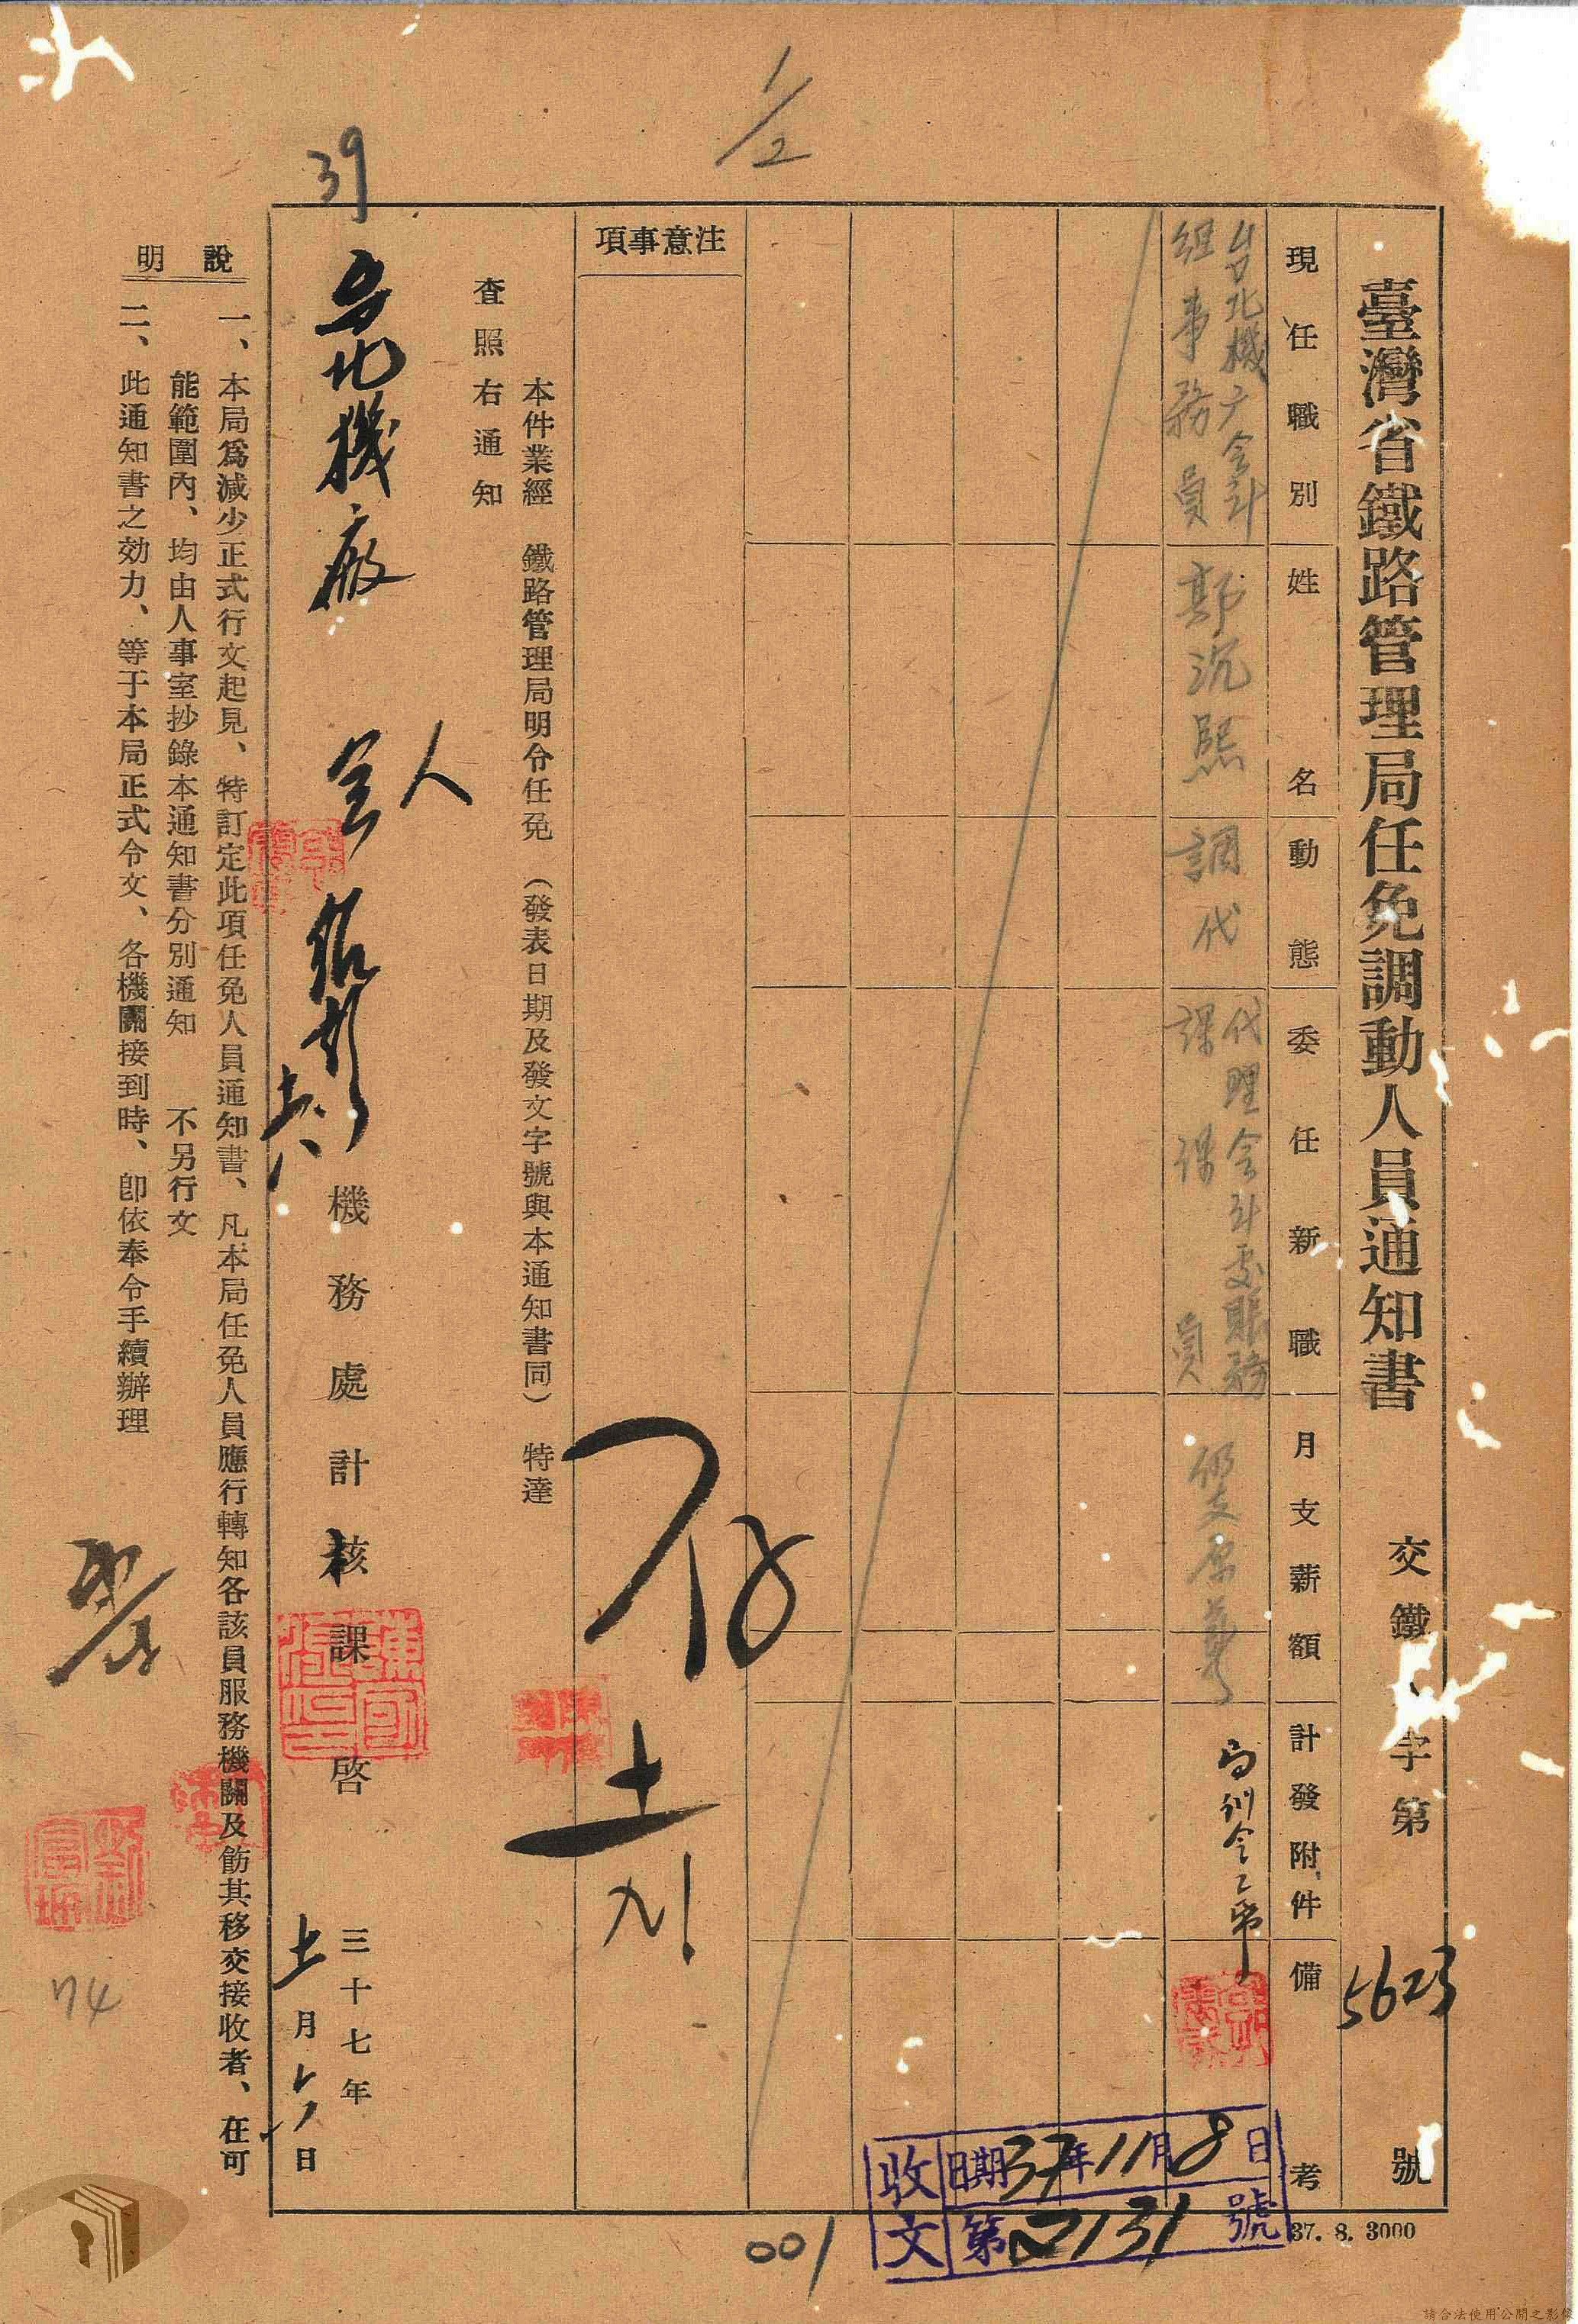 臺灣省鐵路管理局任免調動人員通知書
交鐵人字第5623號
現任職別
姓名
動態
委任新職
月支薪額
計發附件
備考
台北機广会計
組事務員
鄭沉熙
調代
代理会計處賬務
課課員
仍支原薪
注意事項
本件業經 鐵路管理局明令任免 （發表日期及發文字號與本通知書同） 特達
查照右通知
台北機廠
機務處計核課啓
三十七年
十一月六日
說明
一、本局爲減少正式行文起見、特訂定此項任免人員通知書、凡本局任免人員應行轉知各該員服務機關及飭其移交接收者、在可
能範圍內、均由人事室抄錄本通知書分別通知 不另行文
二、此通知書之効力、等于本局正式令文、各機關接到時、卽依奉令手續辦理
存
收文
日期37年11月8日
第2131號
37. 8. 3000
001
39
1/2
74
請合法使用公開之影像